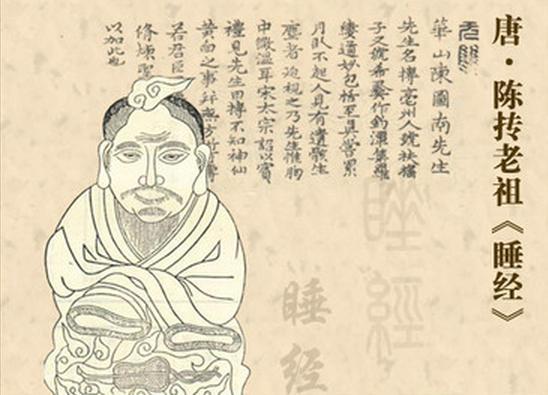 唐·陈抟老祖《睡经》
華山陳圖南先生
先生名摶亳州人號扶搖
子又號希夷作釣潭集羅
縷道妙包括至真嘗累
月臥不起人見有遺骸生
塵者迫視之乃先生惟胸
中微溫耳宋太宗詔以賓
禮見先生曰摶不知神仙
黃白之事
若君臣
脩煉
以加此也
睡經
睡经